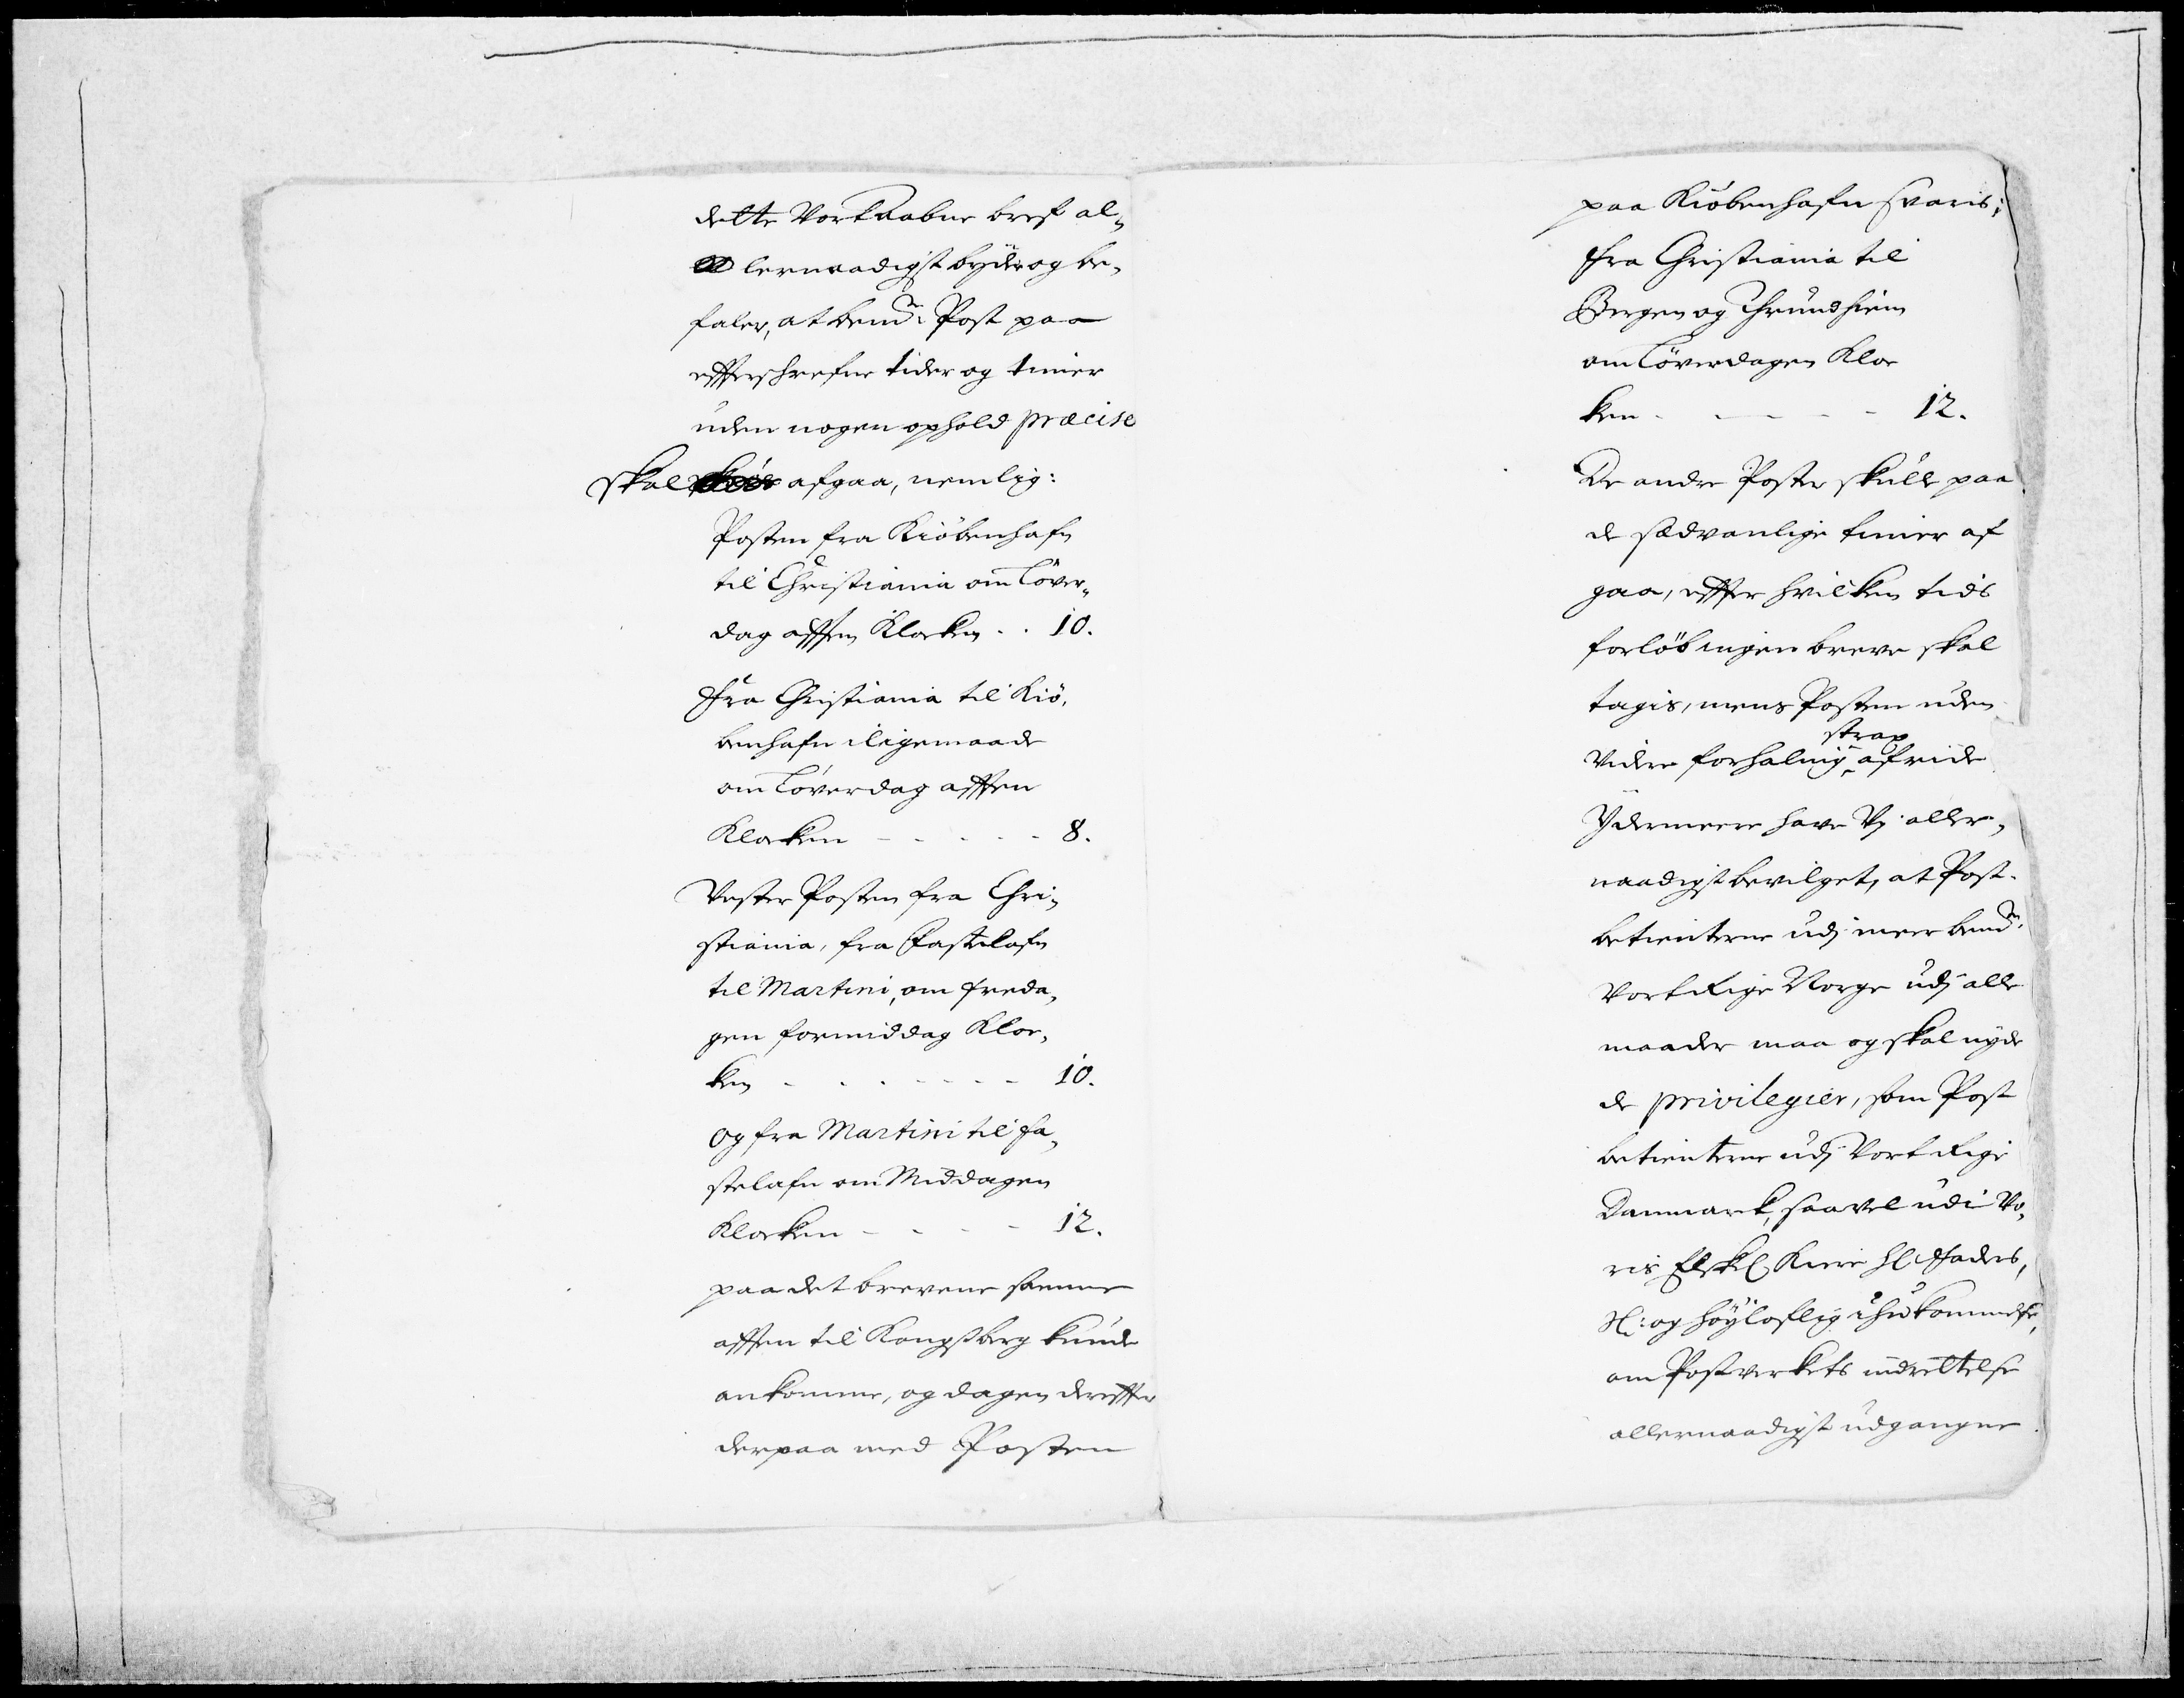 dette Vort aabne bref al-
lernaadigst byde og be-
faler, at bemte: Post paa
effterschrefne tider og timer
uden nogen ophold præcise
skal afgaa, nemlig:
Posten fra Kiöbenhafn
til Christiania om Löver-
dag afften Klocken . . 10.
Fra Christiania til Kiö-
benhafn iligemaade
om Löverdag afften
Klocken - - - - - 8.
Vester Posten fra Chri-
stiania, fra Fastelafn
til Martini, om freda-
gen formiddag Kloc-
ken - - - - - - - 10.
Og fra Martini til Fa-
stelafn om Middagen
Klocken - - - - 12.
paa det brevene samme
afften til Kongsberg kunde
ankomme, og dagen dereffter
derpaa med Posten
paa Kiöbenhafn svaris;
Fra Christiania til
Bergen og Thrundhiem
om Löverdagen Kloc
ken - - - - - 12.
De andre Poster skulle paa
de sædvanlige timer af
gaa, effter hvilken tids
forløb ingen breve skal
tagis, mens Posten uden
strax
videre forhaling afride
Ydermeere have Vj aller-
naadigst bevilget, at Post-
betienterne udj meer bemte
Vort Rige Norge udj alle
maader maa og skal nyde
de privilegier, som Post
betienterne udj Vort Rige
Danmarck, saavel udi Vo-
ris Elskel Kiere Hr Faders,
Hl: og höylofflig ihukommelse,
om Postverkets indrettelse
allernaadigst udgangne